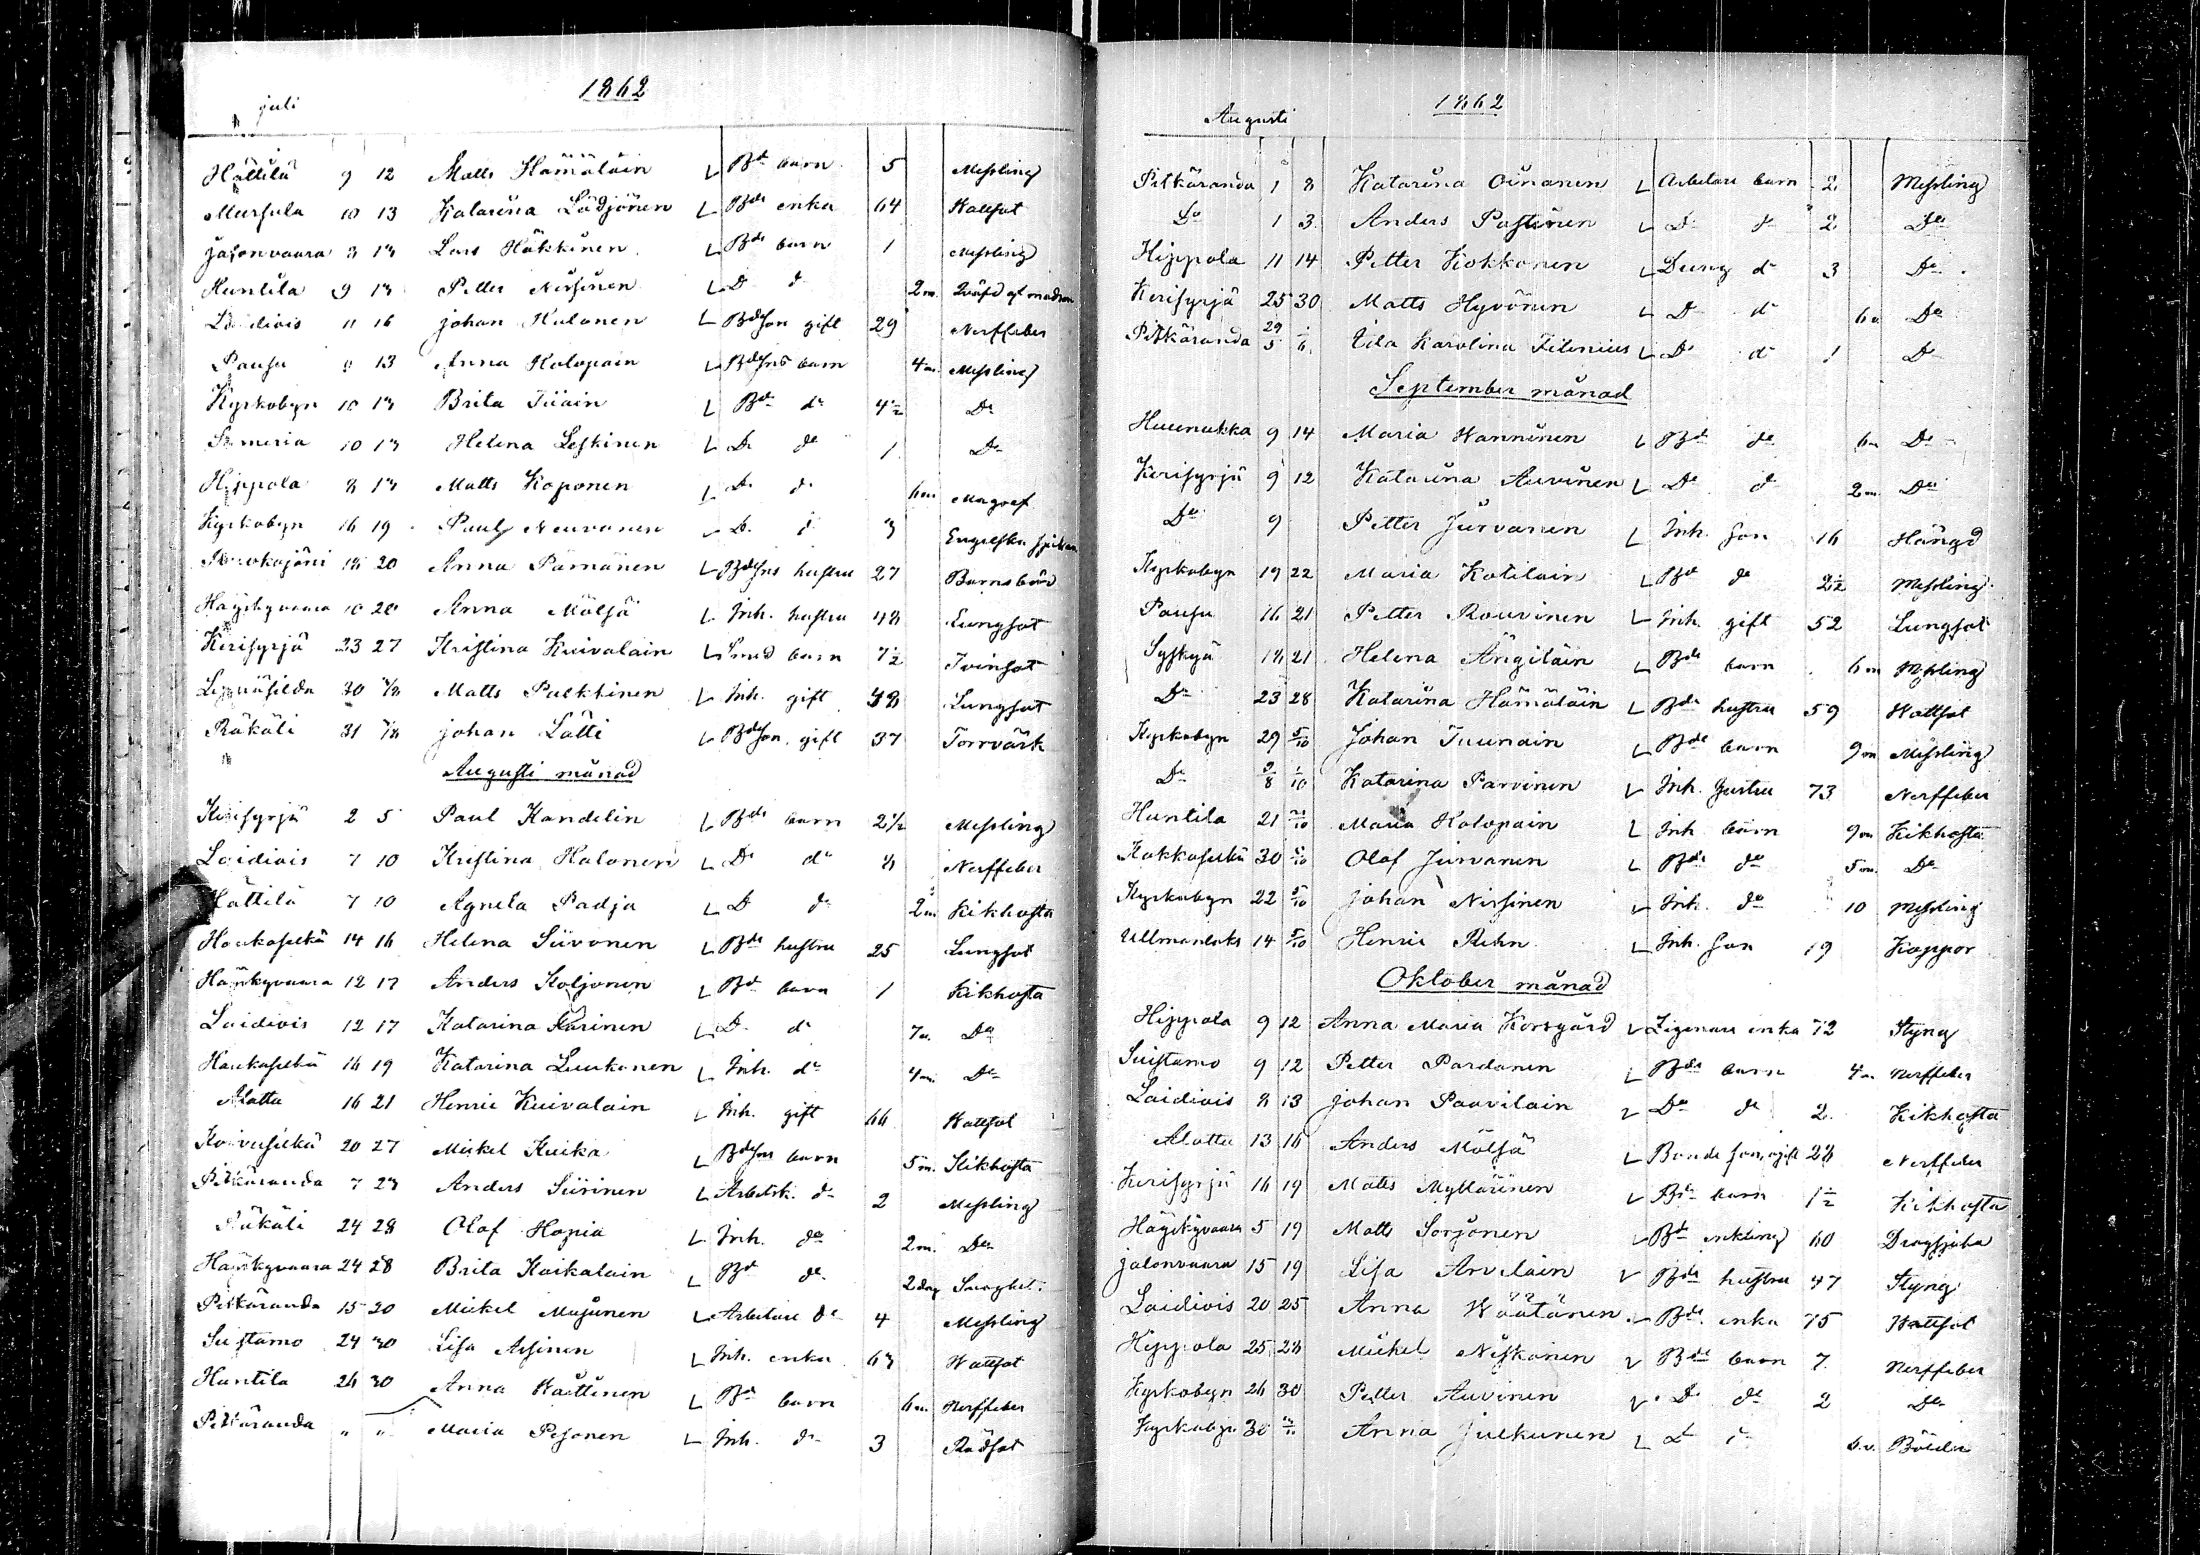 1862
juli
Hättilä 9 12 Matts Hämäläin Bde barn 5 Messling
Mursula 10 13 Katarina Lödjönen Bde enka 64 Wattsot
Jalonvaara 8 13 Lars Häkkinen Bde barn 1 Messling
Huntila 9 13 Petter Nissinen D d 2 m.
Laidiois 11 16 Johan Halonen Bdeson gift 29 Nerffeber
Pausu 13 Anna Holopain Bdesns barn 4 m. Messling
Kyrkobyn 10 13 Brita Bde de 4½ Do
10 13 Helena Leskinen D de 1 Do
Hippola 8 13 Matts Koponen D d 6 m Magref
Kyrkobyn 16 19 Paul Neuvonen D. d 3 Engelska sjukan
18 20 Anna Pärnänen Bdesns hustru 27 Barnsbörd
Häyskyvaara 10 20 Anna Mölsä Inh. hustru 48 Lungsot
Kerisyrjä 23 27 Kristina Kuivalain Smed barn 7½ Tvinsot
30 Matts Pulkkinen Inh. gift 48 Lungsot
Räkäli 31 Johan Lätti Bdeson gift 37 Torrvärk
Augusti månad
Kerisyrjä 2 5 Paul Kandelin Bde barn 2½ Messling
Laidiois 7 10 Kristina Halonen D d 8 Nerffeber
Hättilä 7 10 Agneta Padja D d 2 m. Kikhosta
Haukaselkä 14 16 Helena Siivonen Bde hustru 25 Lungsot
Häyskyvaara 12 17 Anders Koljonen Bde barn 1 Kikhosta
Laidiois 12 17 Katarina D. d 7 m. Do
Haukaselkä 16 19 Katarina Luukonen Inh. d 4 m. Do
Alattu 16 21 Henric Kuivalain Inh. gift 66 Wattsot
Koivuselkä 20 27 Mickel Kuika Bdesns barn 5 m. Kikhosta
Pitkäranda 7 23 Anders Siirinen Arbetsk. d 2 Messling
Räkäli 24 28 Olof Hopia Inh. de 2 m. Do
Häyskyvaara 24 28 Brita Kaikalain Bd de 2 dag
Pitkäranda 15 20 Mickel Musunen Arbetare de 4 Messling
Suistamo 24 30 Lisa Assinen Inh. enka 63 Wattsot
Huntila 26 30 Anna Wäättinen Bd barn 6 m. Nerffeber
Pitkäranda " " Maria Pesonen Inh. d 3 Rödsot
1862
Augusti
Pitkäranda 1 8 Katarina Oinonen Arbetare barn 2 Messling
Do 1 3 Anders Pastinen D d 2 Do
Hippola 11 14 Petter Kokkonen Dreng d 3 Do
Kerisyrjä 25 30 Matts Hyvönen D d 6 m Do
Pitkäranda 29/5 Karolina D d 1 D
September månad
Huunukka 9 14 Maria Wanninen Bde de 6 m Do
Kerisyrjä 9 12 Katarina Auvinen De d 2 m. Do
Do 9 Petter Jurvanen Inh. son 16 Hängd
Kyrkobyn 19 22 Maria Kotilain Bd de 2½ Messling
Pausu 16 21 Petter Rouvinen Inh. gift 52 Lungsot
Syskyä 18 21 Helena Ängiläin Bde barn 6 m Messling
Do 23 28 Katarina Hämäläin Bde hustru 59 Wattsot
Kyrkobyn 29 5/10 Johan Tuunain Bde barn 9 m Messling
Do 9/8 1/10 Katarina Parvinen Inh. hustru 73 Nerffeber
Huntila 21 Maria Holopain Inh barn 9 m Kikhosta
Kokkoselkä 30 5/10 Olof Jurvanen Bde de 5 m. Do
Kyrkobyn 22 5/10 Johan Nissinen Inh. de 10 Messling
Ullmanlaks 14 5/10 Henric Rehn Inh. son 19 Koppor
Oktober månad
Hippola 9 12 Anna Maria Korsgård Zigenare enka 72 Styng
Suistamo 9 12 Petter Pardanen Bde barn 4 m Nerffeber
Laidiois 8 13 Johan Paavilain De d 2 Kikhosta
Alattu 13 16 Anders Mölsä Bonde son, ogift 28 Nerffeber
Kerisyrjä 16 19 Matts Myllärinen Bde barn 1½ Kikhosta
Häyskyvaara 5 19 Matts Sorjonen Bde enkling 60 Dragsjuka
Jalonvaara 15 19 Lisa Arvelain Bde hustru 47 Styng
Laidiois 20 25 Anna Wäätänen Bde enka 75 Wattsot
Hippola 25 28 Mickel Niskanen Bde barn 7 Nerffeber
Kyrkobyn 26 30 Petter Auvinen D de 2 Do
Kyrkobyn 30 Anna Julkunen D d 6 v. Bölder